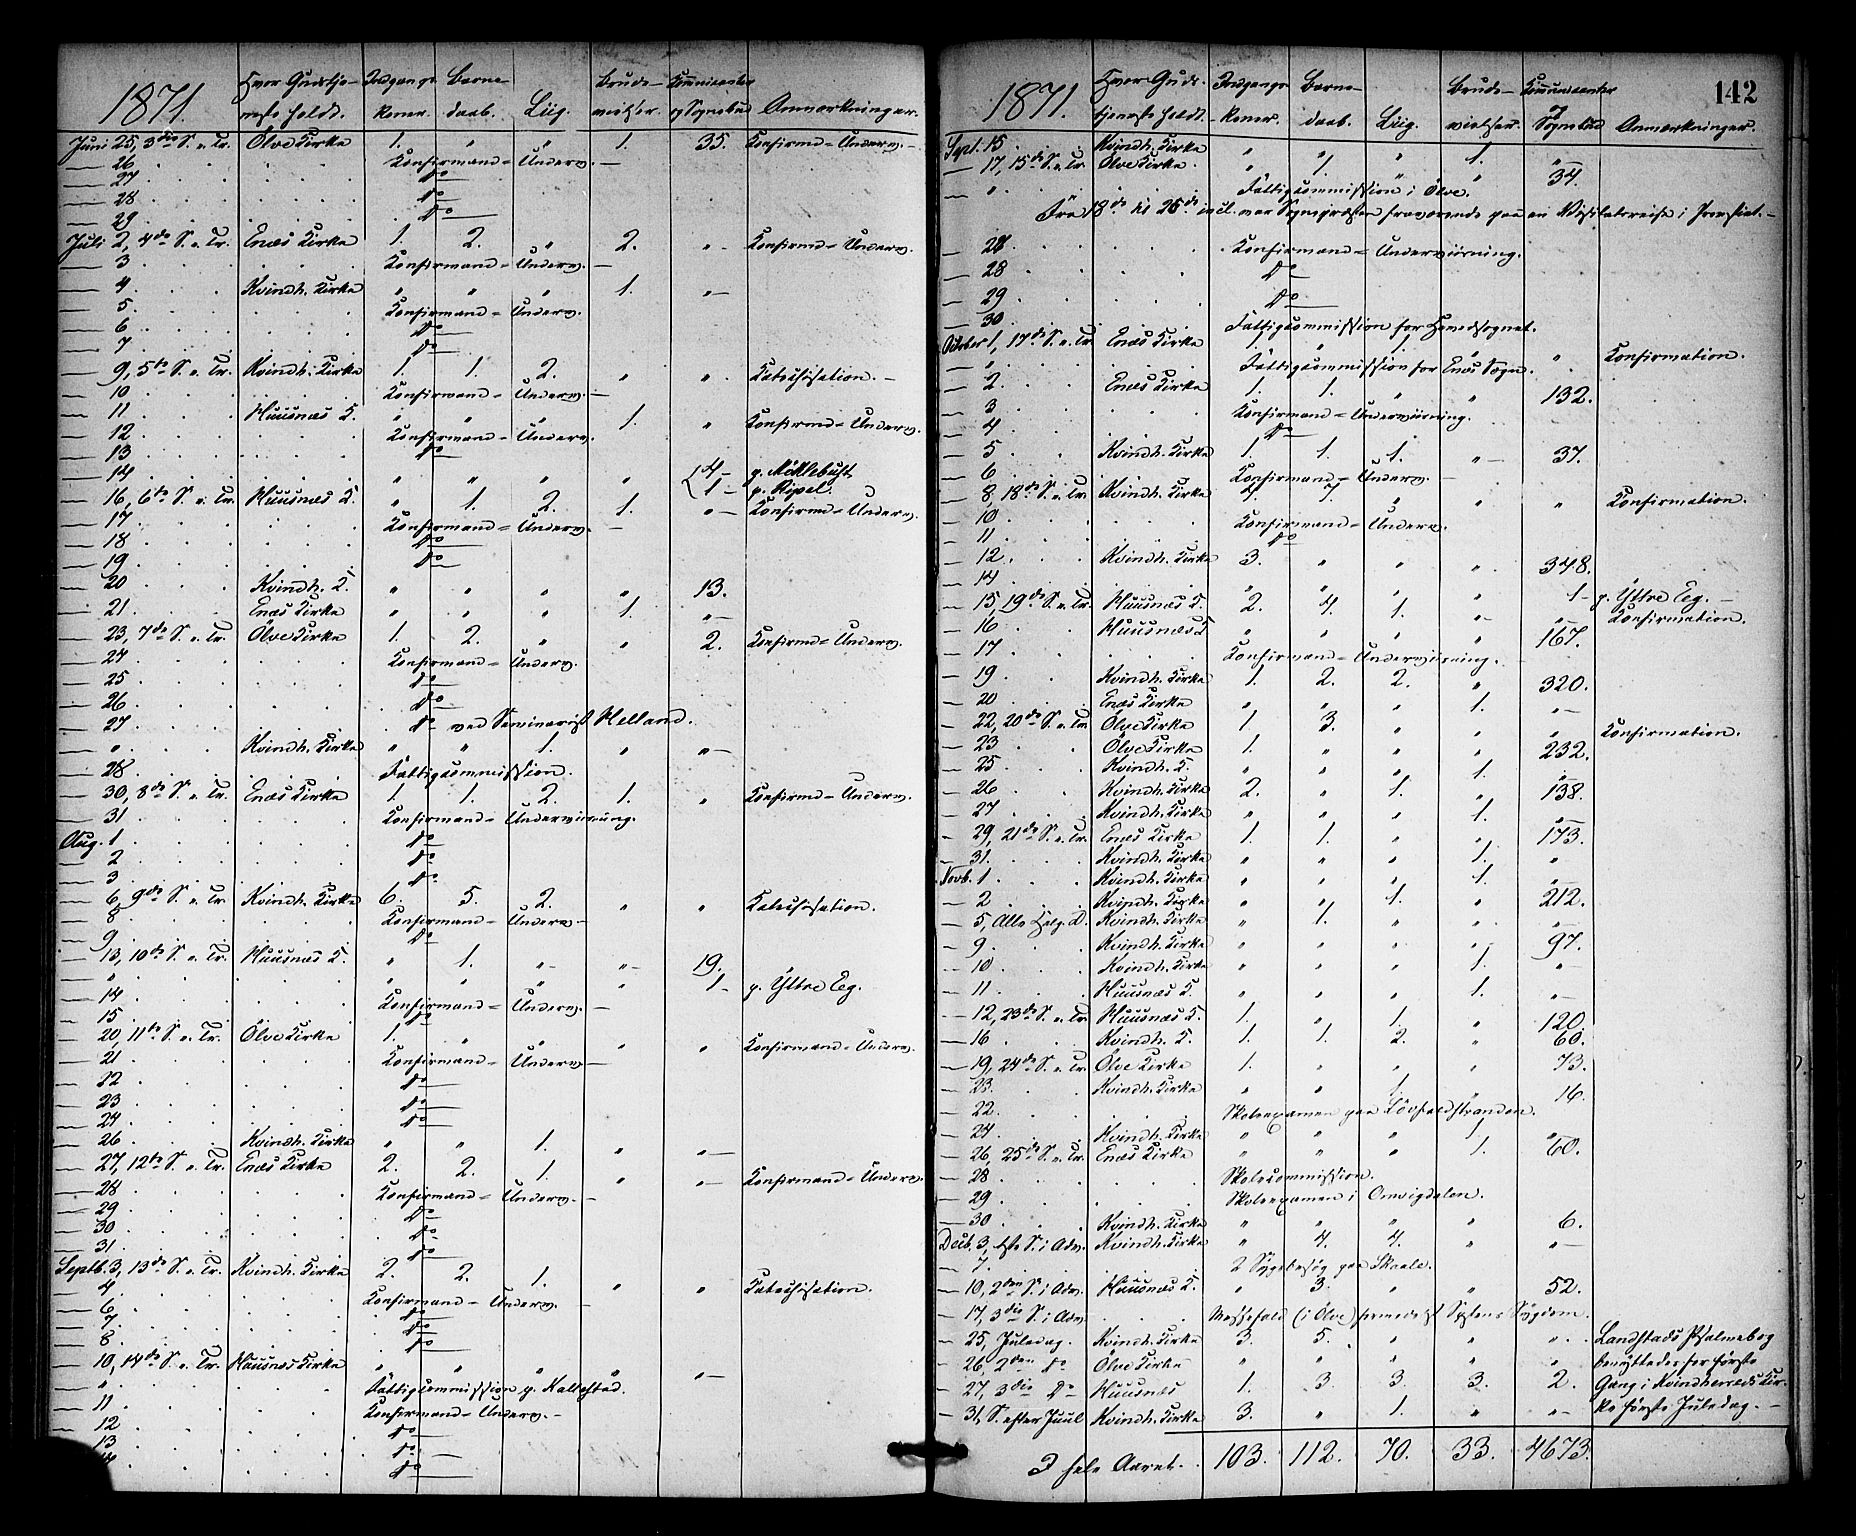 1871. Hvor Gudstje- Indgangs- Barne- Brude- Communicanter
neste holdt. koner. daab. Liig. vielser. og Sognebud Anmærkninger.
Juni 25, 3die S. e. Tr. Ölve Kirke 1. " " 1. 35. Konfirmd= Underv. —
— 26 . . . Konfirmand= Underv. —
— 27 . . . Do
— 28 . . . Do
— 29 . . . Do
Juli 2, 4de S. e. Tr. Enæs Kirke 1. 2. " 2. " — Konfirmd= Underv.
— 3 . . . Konfirmand= Underv. —
— 4 . . . Kvindh. Kirke " " " 1. " —
— 5 . . . Konfirmand= Underv.
— 6 . . . Do
— 7 . . . Do
— 9, 5te S. e. Tr. Kvindh. Kirke 1. 1. 2. " " Katechisation. —
— 10 . . . Konfirmand= Underv. —
— 11 . . . Huusnæs K. " " " 1. " Konfirmd= Underv.
— 12 . . . Konfirmand= Underv.
— 13 . . . Do
— 14 . . . " " " " 4 — p. Möklebust
1 — p. Ripel.
— 16, 6te S. e. Tr. Huusnæs K. " 1. 2. 1. " — Konfirmd= Underv.
— 17 . . . Konfirmand= Underv. —
— 18 . . . Do
— 19 . . . Do
— 20 . . . Kvindh. K. " " " " 13.
— 21 . . . Enæs Kirke " " " 1. " —
— 23, 7de S. e. Tr. Ölve Kirke 1. 2. " " 2. Konfirmd= Underv.
— 24 . . . Konfirmand= Underv.
— 25 . . . Do
— 26 . . . Do
— 27 . . . Do ved Seminarist Helland.
— " . . . Kvindh. Kirke " " 1. " " —
— 28 . . . Fattigcommission.
— 30, 8de S. e. Tr. Enæs Kirke 1. 1. 2. 1. " Konfirmd= Underv.
— 31 . . . Konfirmand= Underviisning.
Aug. 1 . . . Do
— 2 . . . Do
— 3 . . . Do
— 6, 9de S. e. Tr. Kvindh. Kirke 6. 5. 2. " " Katechisation.
— 8 . . . Konfirmand= Underv. —
— 9 . . . Do
— 13, 10de S. e. Tr. Huusnæs K. " 1. " — " — 19.
— " . . . " " " " 1 — p. Yttre Eeg.
— 14 . . . Konfirmand= Underv. —
— 15 . . . Do
— 20, 11te S. e. Tr. Ölve Kirke 1. " " " " Konfirmand= Underv.
— 21 . . . Konfirmand= Underv. —
— 22 . . . Do
— 23 . . . Do
— 24 . . . Do
— 26 . . . Kvindh. Kirke " " 1. " " —
— 27, 12te S. e. Tr. Enæs Kirke 2. 2. 1. " " — Konfirmand= Underv.
— 28 . . . Konfirmand= Underv. —
— 29 . . . Do
— 30 . . . Do
— 31 . . . Do
Septb. 3, 13de S. e. Tr. Kvindh. Kirke 2. 2. 1. " " Katechisation.
— 4 . . . Konfirmand= Underv. —
— 6 . . . Do
— 7 . . . Do
— 8 . . . Do
— 10, 14de S. e. Tr. Huusnæs Kirke " " " " " —
— " . . . Fattigcommission p. Kaltestad.
— 11 . . . Konfirmand= Underv. —
— 12 . . . Do
— 13 . . . Do —
. . . Do
142
1871. Hvor Guds- Indgangs- Barne- Brude- Communicanter
tjeneste holdt. koner. daab. Liig. vielser. og Sognebud Anmærkninger.
Sept. 15 . . . Kvindh. Kirke " " " 1. " —
— 17, 15de S. e. Tr. Ölve Kirke . " 1. " " 34.
— " . . . Fattigcommission i Ölve.
Fra 18de til 26de incl. var Sognepræsten fraværende paa en Visitatsreise i Provstiet. —
— 27 . . . Konfirmand= Underviisning.
— 28 . . . Do
— 29 . . . Do
— 30 . . . Fattigcommission for Hovedsognet.
October 1, 17de S. e. Tr. Enæs Kirke 1. " 1. " " Konfirmation.
— " . . . Fattigcommission for Enæs Sogn.
— 2 . . . Enæs Kirke 1. 1. " " 132.
— 3 . . . Konfirmand= Underviisning.
— 4 . . . Do
— 5 . . . Kvindh. Kirke 1. 1. 1. " — 37.
— 6 . . . Konfirmand= Underv. —
— 8, 18de S. e. Tr. Kvindh. Kirke 2. 7. " " " Konfirmation.
— 10 . . . Konfirmand= Underv.
— 11 . . . Do
— 12 . . . Kvindh. Kirke 3. " " " 348.
— 14 . . . " " " " 1 — p. Yttre Eeg. —
— 15, 19de S. e. Tr. Huusnæs K. 2. 4. 1. " — " — Konfirmation.
— 16 . . . Huusnæs K " " " " 167.
— 17 . . . Konfirmand= Underviisning. —
— 19 . . . Kvindh. Kirke 1. 2. 2. " 320.
— 20 . . . Enæs Kirke " " " 1. " —
— 22, 20de S. e. Tr. Ölve Kirke 1. 3. " " " Konfirmation.
— 23 . . . Ölve Kirke 1. " " " 232.
— 25 . . . Kvindh. K. " " " 1. " —
— 26 . . . Kvindh. Kirke 2. " 1. " 138.
— 27 . . . Kvindh. Kirke " " " 1. " —
— 29, 21de S. e. Tr. Enæs Kirke 1. 1. " " 173.
— 31. . . . Kvindh. Kirke " " " 1. "
Novb. 1 . . . Kvindh. Kirke " " " 1. " —
— 2 . . . Kvindh. Kirke " " 1. " 212.
— 5, Alle Helg. D. Kvindh. Kirke " 1. " " " —
— 9 . . . Kvindh. Kirke " " " " 97.
— 10 . . . Kvindh. Kirke " " " 1. " —
— 11 . . . Huusnæs K. " " " 1. " —
— 12, 23de S. e. Tr. Huusnæs K. 1. " 1. " 120.
— 16 . . . Kvindh. K. 1. 1. 2. " 60.
— 19, 24de S. e. Tr. Ölve Kirke 1. " " " 73.
— 23. . . . Kvindh. Kirke " " 1. " 16.
— 22. . . . Skoleexamen paa Lövfaldstranden.
— 24 . . . Kvindh. Kirke " " " 1. " —
— 26, 25de S. e. Tr. Enæs Kirke " " " 1. 60.
— 28 . . . Skolecommission.
— 29 . . . Skoleexamen i Omvigdalen.
— 30 . . . Kvindh. Kirke " " " " 6.
Decb. 3, 1ste S. i Adv. Kvindh. Kirke " 4. 4. " " —
— 7 . . . 2 Sygebesøg paa Skaale.
— 10, 2den S. i Adv. Huusnæs K. " 3. " " 52.
— 17, 3die S. i Adv. . . . Messefald (i Ölve) formedelst Sysl Sygdom.
— 25, Juledag. Kvindh. Kirke 3. 5. " " " — Landstads Psalmebog
— 26, 2den Do Ölve Kirke " " " " " benyttedes for første
— 27, 3die Do Huusnæs 1. 3. 3. 3. 2. Gang i Kvindherreds Kir-
— 31, S. efter Juul Kvindh. Kirke 3. " 1. " " — ke første Juledag. —
I hele Aaret. 103. 112. 70. 33. 4673.